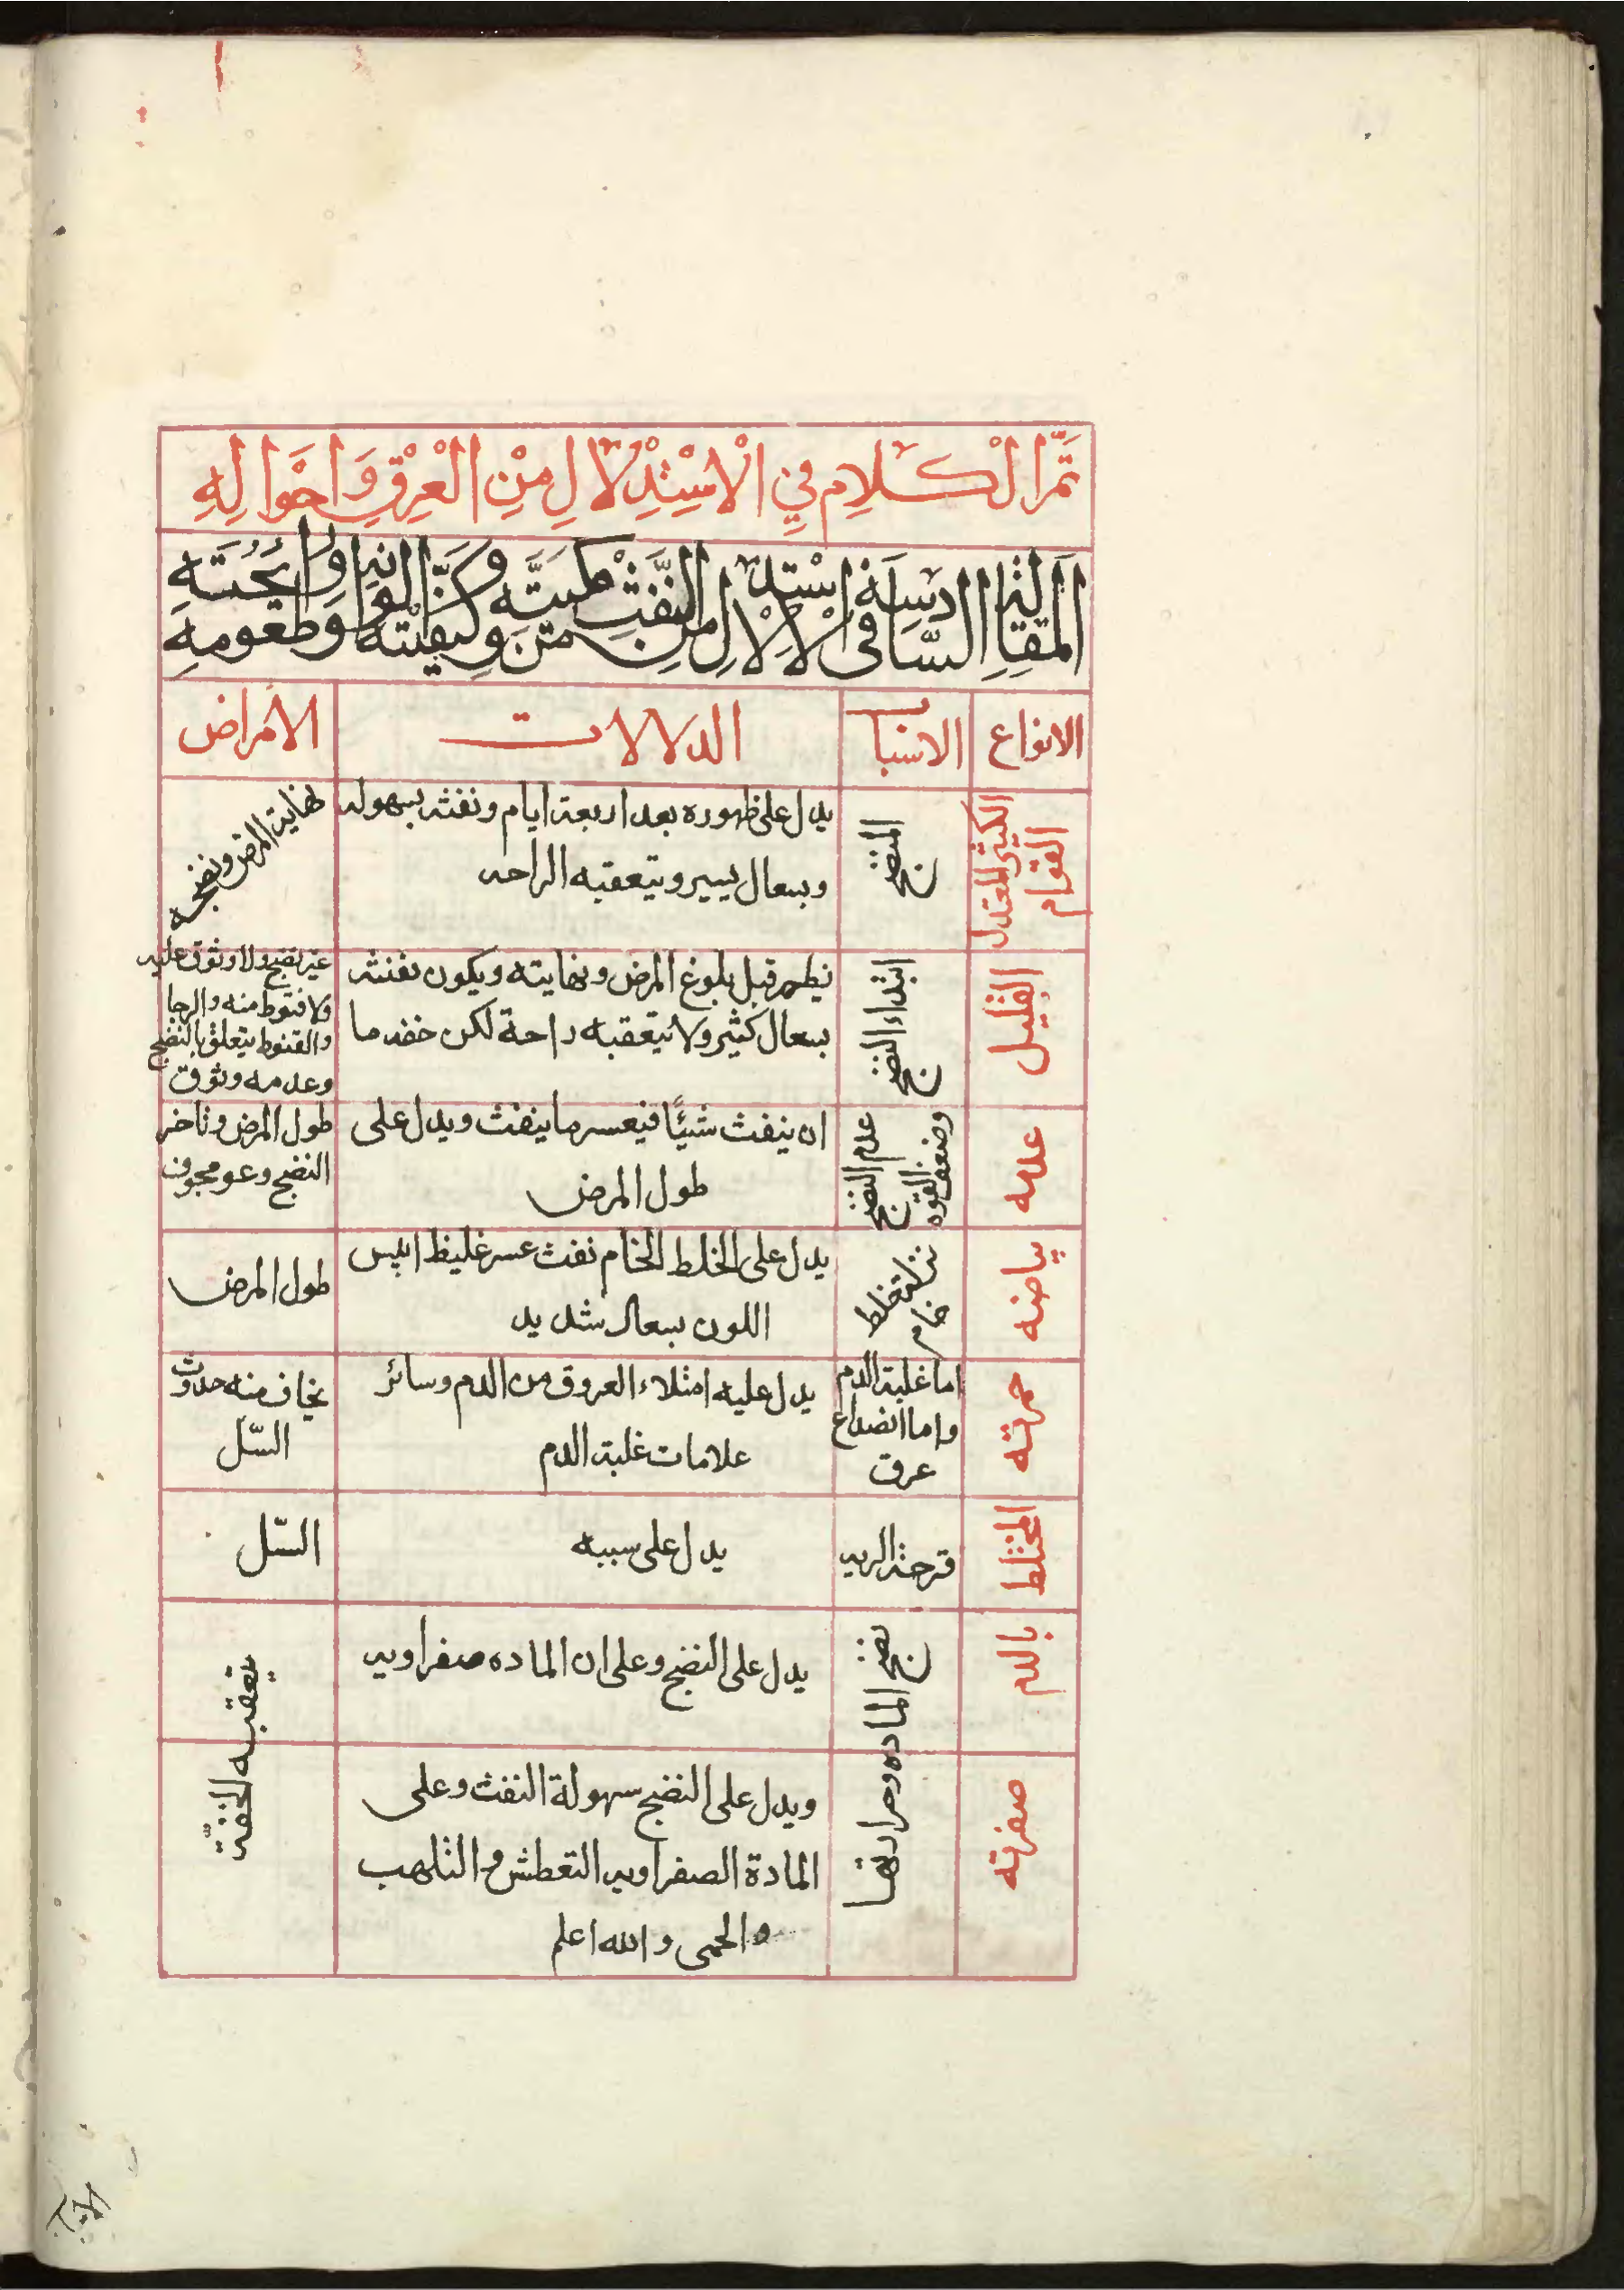 تَمَّ الْكَلَامِ فِيْ الْاسْتِدْلَالِ مِنْ الْعِرْقِ وَاحْوَالِهِ
المقالة السادسة في استدلال الاستدلال من النفث
وكميته وكيفيته والوانه وطعومه ورائحته
الانواع الاسباب الدلالات الامراض
الكثير المعتدل القوام
النضج
يدل على ظهوره بعد اربعة ايام ونفثه بسهوله
وبسعال يسير ويتعقبه الراحه
نهاية المرض ونضجه
القليل
ابتداء النضج
يظهر قبل بلوغ المرض ونهايته ويكون نفثه
بسعال كثير ولا يتعقبه راحة لكن خفه ما
غير نضج ولا وثوق عليه
ولا قنوط منه والرجا
والقنوط يتعلق بالنضج
وعدمه وثوق
عدمه
عدم النضج
وضعف القوه
ان ينفث شيئًا فيعسر ما ينفث ويدل على
طول المرض
طول المرض وتاخر
النضج وعو مجوف
بياضه
خلط
خام
يدل على الخلط الخام نفث عسر غليظ ابيس
اللون بسعال شديد
طول المرض
حمرته
اما غلبة الدم
واما انصداع
عرق
يدل عليه امتلاء العروق من الدم وسائر
علامات غلبة الدم
يخاف منه حدوث
السّل
المختلط
قرحة الريه
يدل على سببه
السّل
بالدم
نضج الماده وحرارتها
يدل على النضج وعلى ان الماده صفراويه
يعقبه الخفّة
صفرته
ويدل على النضج سهولة النفث وعلى
المادة الصفراويه التعطش والتلهب
والحمى والله اعلم